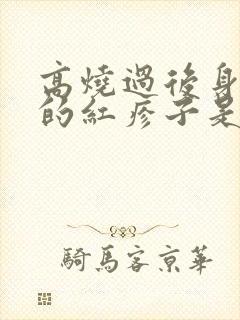 高燒過後身
的紅疹子是
騎馬客京華